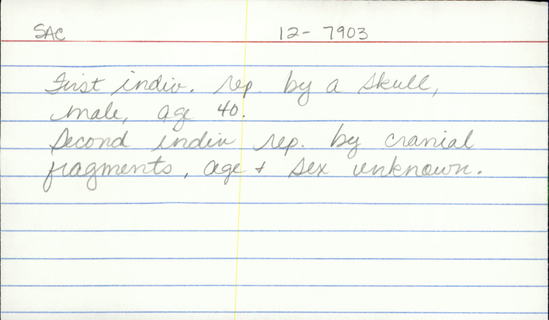 SAC 12-7903
First indiv. rep. by a skull,
male, age 40.
Second indiv rep. by cranial
fragments, age + sex unknown.